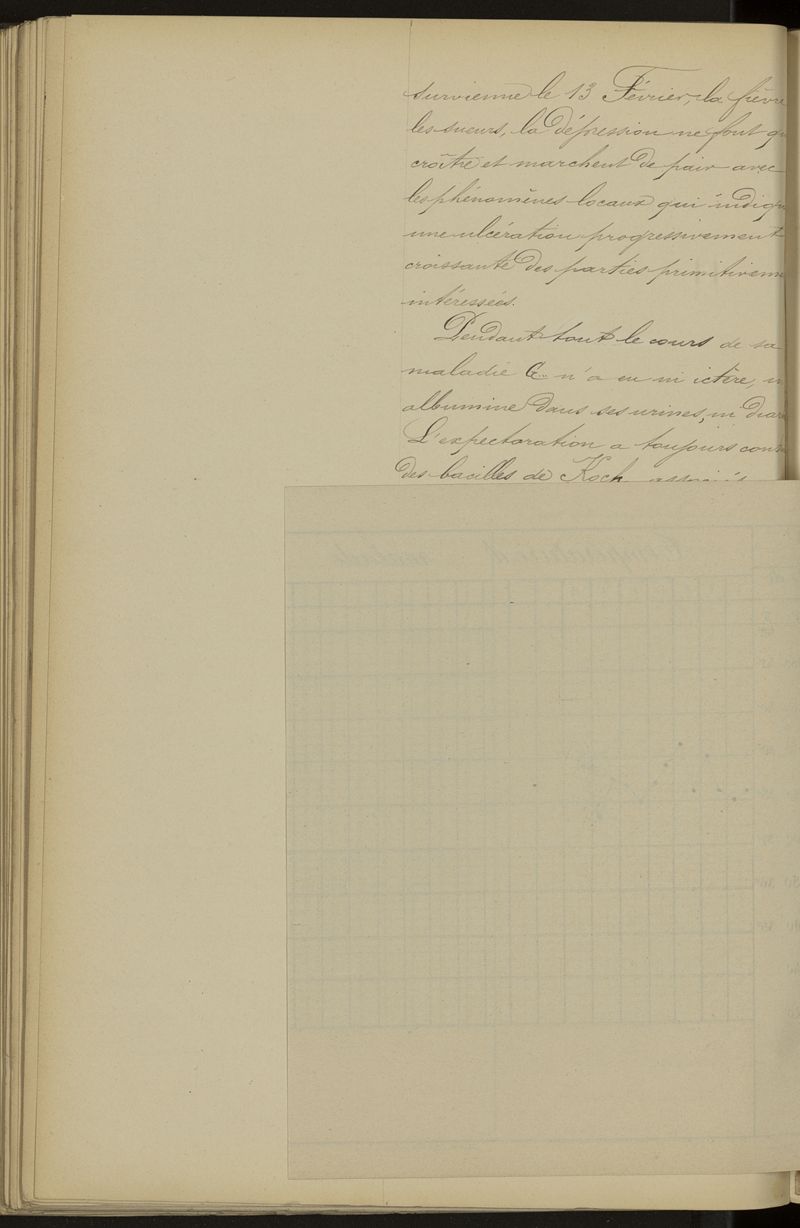 survienne le 13 Février, la fièvre
les sueurs, la dépression ne font qu
croître et marchent de pair avec
les phénomènes locaux qui indiqu
une ulcération progressivement
croissante des parties primitiveme
intéressées.
Pendant tout le cours de sa
maladie G... n'a eu ni ictère, n
albumine dans ses urines, ni diar
L'expectoration a toujours cont
des bacilles de Koch associés